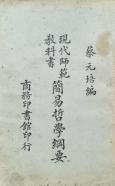 蔡元培編
現代師範
教科書
簡易哲學綱要
商務印書館印行